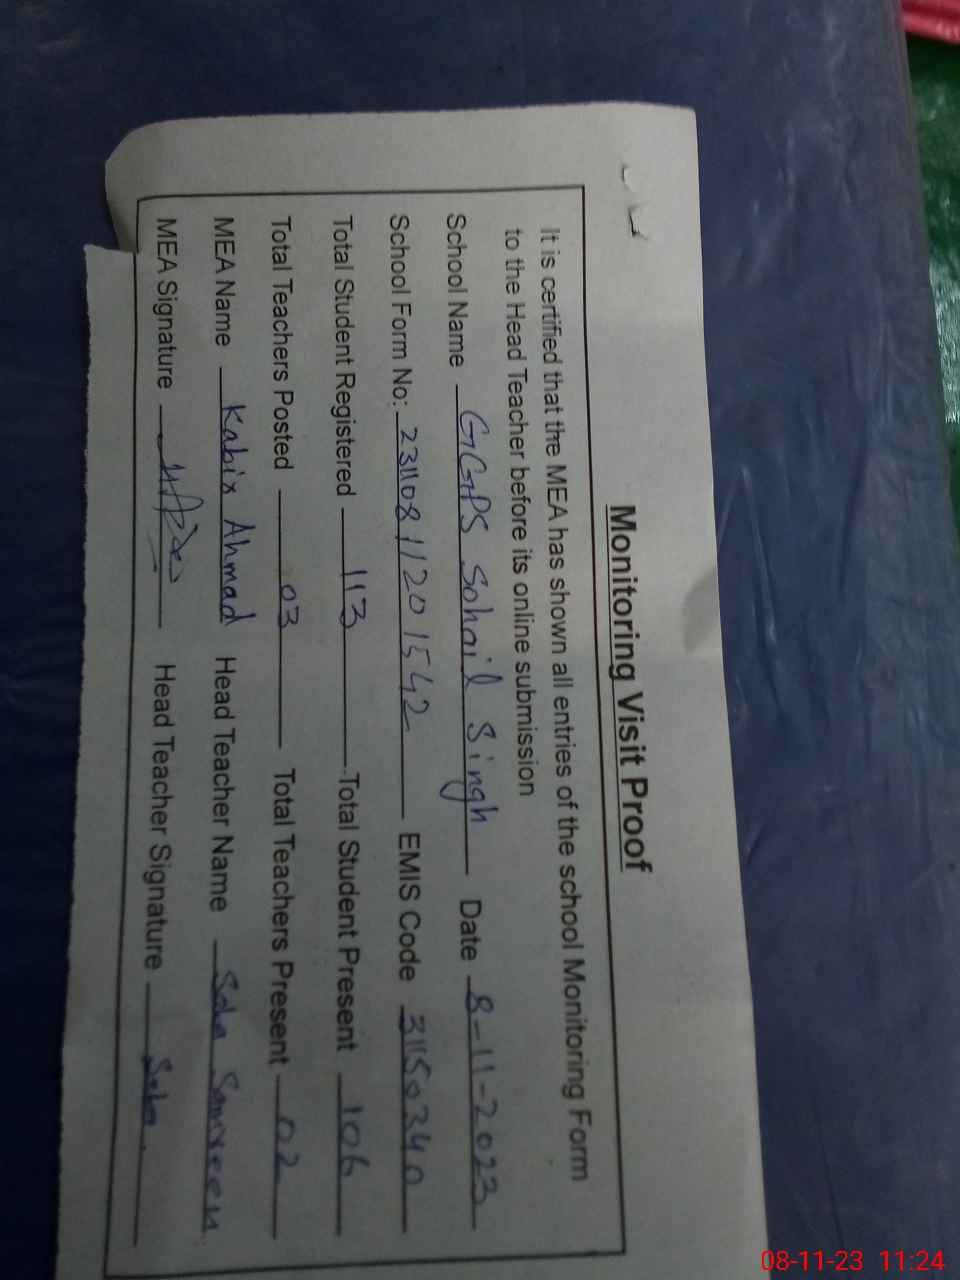 Monitoring Visit Proof
It is certified that the MEA has shown all entries of the school Monitoring Form
to the Head Teacher before its online submission
School Name GGPS Sohail Singh Date 8-11-2023
School Form No: 23110811201542 EMIS Code 31150340
Total Student Registered 113 Total Student Present 106
Total Teachers Posted 03 Total Teachers Present 02
MEA Name Kabir Ahmad Head Teacher Name Saba Samreen
MEA Signature Head Teacher Signature Saba.
08-11-23 11:24